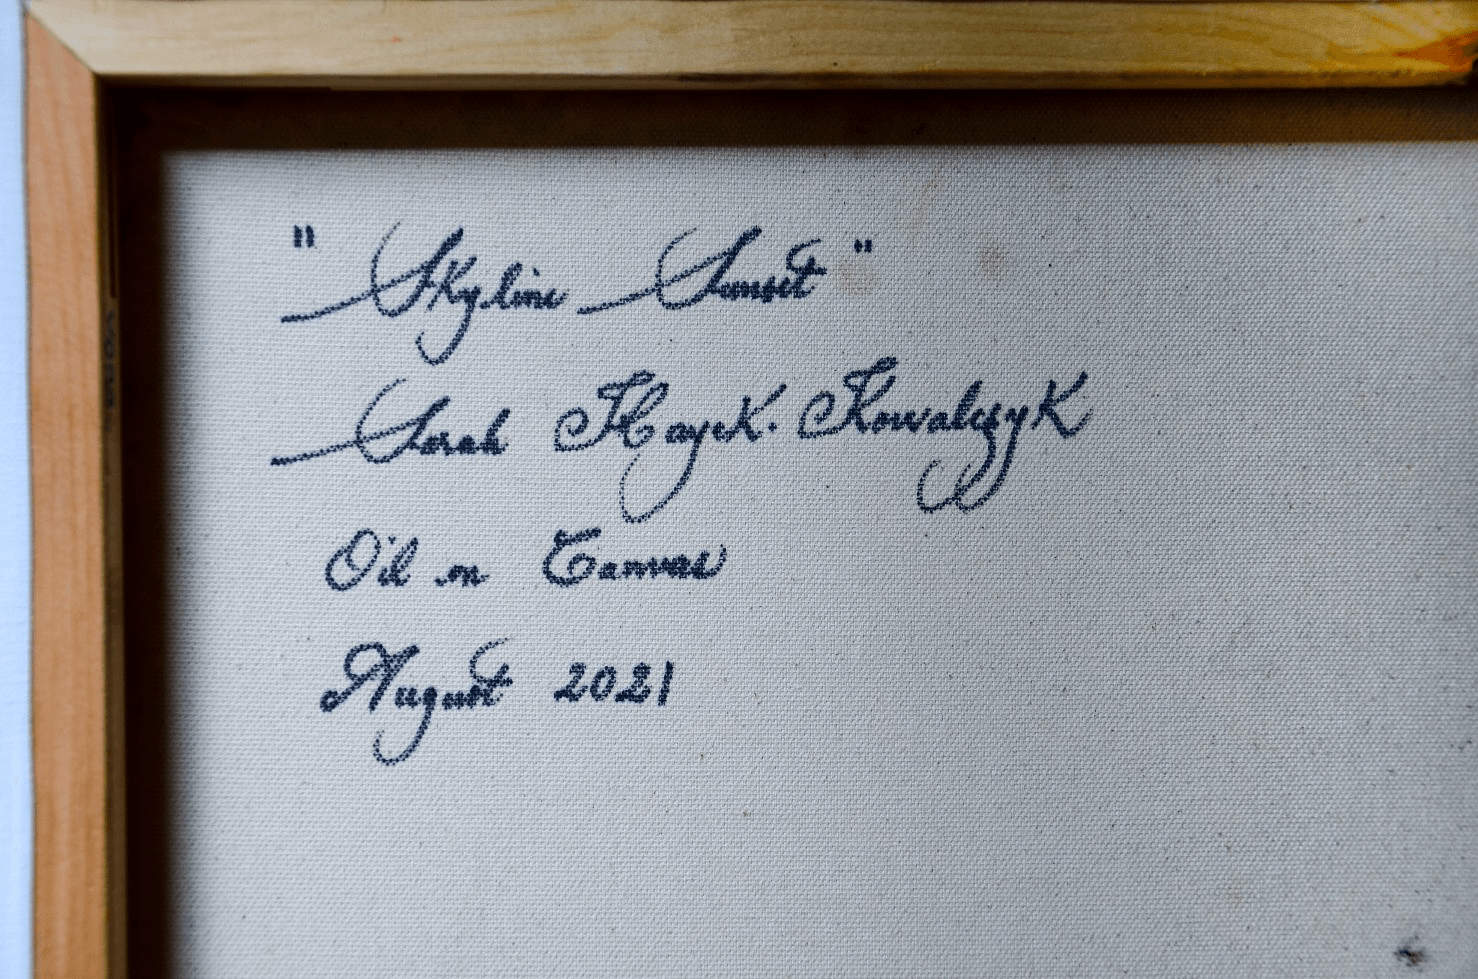 "Skyline Sunset"
Sarah Hayek-Kowalczyk
Oil on Canvas
August 2021